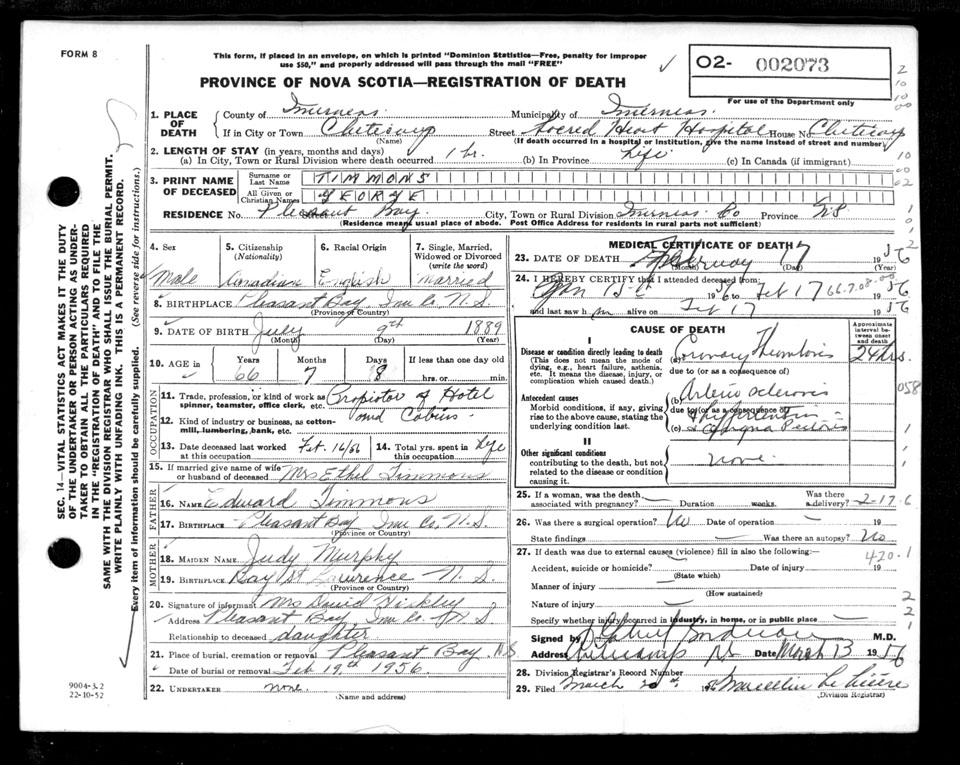 FORM 8
This form, if placed in an envelope, on which is printed "Dominion Statistics—Free, penalty for improper
use $50," and properly addressed will pass through the mail "FREE"
PROVINCE OF NOVA SCOTIA—REGISTRATION OF DEATH
02- 002073
For use of the Department only
1. PLACE OF DEATH
County of Inverness. Municipality of Inverness.
If in City or Town Cheticamp Street Sacred Heart Hospital House No. Cheticamp
(Name) (If death occurred in a hospital or institution, give the name instead of street and number)
2. LENGTH OF STAY (in years, months and days)
(a) In City, Town or Rural Division where death occurred 1 hr. (b) In Province Life (c) In Canada (if immigrant)
3. PRINT NAME OF DECEASED
Surname or Last Name TIMMONS
All Given or Christian Names GEORGE
RESIDENCE No. Pleasant Bay. City, Town or Rural Division Inverness Co Province NS
(Residence means usual place of abode. Post Office Address for residents in rural parts not sufficient)
4. Sex 5. Citizenship (Nationality) 6. Racial Origin 7. Single, Married, Widowed or Divorced (write the word)
Male Canadian English Married
8. BIRTHPLACE Pleasant Bay, Inv. Co. N.S.
(Province or Country)
9. DATE OF BIRTH July 9th 1889
(Month) (Day) (Year)
10. AGE in Years Months Days If less than one day old
66 7 8 hrs. or min.
OCCUPATION
11. Trade, profession, or kind of work as spinner, teamster, office clerk, etc. Propietor of Hotel
and Cabins.
12. Kind of industry or business, as cotton-mill, lumbering, bank, etc.
13. Date deceased last worked at this occupation Feb. 16/56 14. Total yrs. spent in this occupation Life
15. If married give name of wife or husband of deceased Mrs Ethel Timmons
FATHER
16. NAME Edward Timmons
17. BIRTHPLACE Pleasant Bay Inv. Co. N.S.
(Province or Country)
MOTHER
18. MAIDEN NAME Judy Murphy
19. BIRTHPLACE Bay St Lawrence N.S.
(Province or Country)
20. Signature of informant Mrs David Hickley
Address Pleasant Bay, Inv. Co. N.S.
Relationship to deceased daughter
21. Place of burial, cremation or removal Pleasant Bay. N.S
Date of burial or removal Feb 19th 1956.
22. UNDERTAKER none.
(Name and address)
MEDICAL CERTIFICATE OF DEATH
23. DATE OF DEATH February 17 1956
(Month) (Day) (Year)
24. I HEREBY CERTIFY that I attended deceased from:
1956 to Feb 17 1956
and last saw him alive on Feb 17 1956
66-7-08-00
CAUSE OF DEATH
Approximate interval between onset and death
I
Disease or condition directly leading to death
(This does not mean the mode of dying, e.g., heart failure, asthenia, etc. It means the disease, injury, or complication which caused death.)
(a) Coronary Thrombosis 24 hrs.
due to (or as a consequence of)
Antecedent causes
Morbid conditions, if any, giving rise to the above cause, stating the underlying condition last.
(b) Arterio sclerosis
due to (or as a consequence of)
Hypertension =
(c) Angina Pectoris
II
Other significant conditions
contributing to the death, but not related to the disease or condition causing it.
none.
058
25. If a woman, was the death associated with pregnancy? Duration weeks. Was there a delivery? 2-17-6
26. Was there a surgical operation? No Date of operation 19
State findings Was there an autopsy? No
27. If death was due to external causes (violence) fill in also the following:— 420.1
Accident, suicide or homicide? Date of injury 19
(State which)
Manner of injury
(How sustained)
Nature of injury
Specify whether injury occurred in industry, in home, or in public place
Signed by M.D.
Address Cheticamp NS Date March 13 1956
28. Division Registrar's Record Number
29. Filed March 20th 1956
(Division Registrar)
SEC. 14—VITAL STATISTICS ACT MAKES IT THE DUTY
OF THE UNDERTAKER OR PERSON ACTING AS UNDER-
TAKER TO OBTAIN ALL THE PARTICULARS REQUIRED
IN THE "REGISTRATION OF DEATH" AND TO FILE THE
SAME WITH THE DIVISION REGISTRAR WHO SHALL ISSUE THE BURIAL PERMIT.
WRITE PLAINLY WITH UNFADING INK. THIS IS A PERMANENT RECORD.
Every item of information should be carefully supplied. (See reverse side for instructions.)
9004-3.2
22-10-52